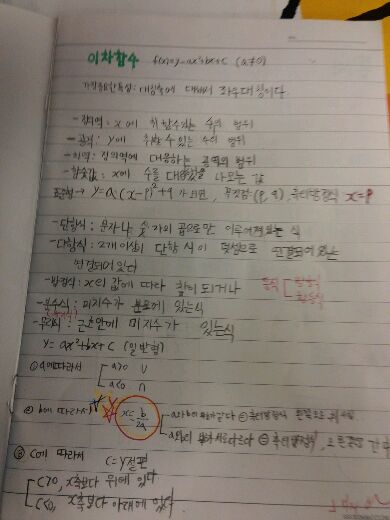 이차함수 f(x)=y=ax²+bx+c (a≠0)
가장중요한특징: 대칭축에 대해서 좌우대칭이다.
-정의역: x에 취할수있는 수의 범위
-공역: y에 취할 수 있는 수의 범위
-치역: 정의역에 대응하는 공역의 범위
-함숫값: x에 수를 대입했을때 나오는 값
표준형→ y=a(x-p)²+q 가 되면, 꼭짓점(p, q), 축의방정식 x=p
-단항식: 문자나 숫자의 곱으로만 이루어져있는 식
-다항식: 2개이상의 단항식이 덧셈으로 연결되어 있는
연결되어 있다
-방정식: x의 값에 따라 참이 되거나
등식 방정식
항등식
-분수식: 미지수가 분모에 있는식
-무리식: 근호안에 미지수가 있는식
y=ax²+bx+c (일반형)
① a에따라서 a>0 U
a<0 ∩
② b에 따라서 x=-b/2a
a와b의 부호가같다 축의방정식 왼쪽으로
a와b의 부호가 서로다르다 축의방정식, 오른쪽으로 간다
③ c에 따라서 c=y절편
c>0, x축보다 위에 있다
c<0, x축보다 아래에 있다